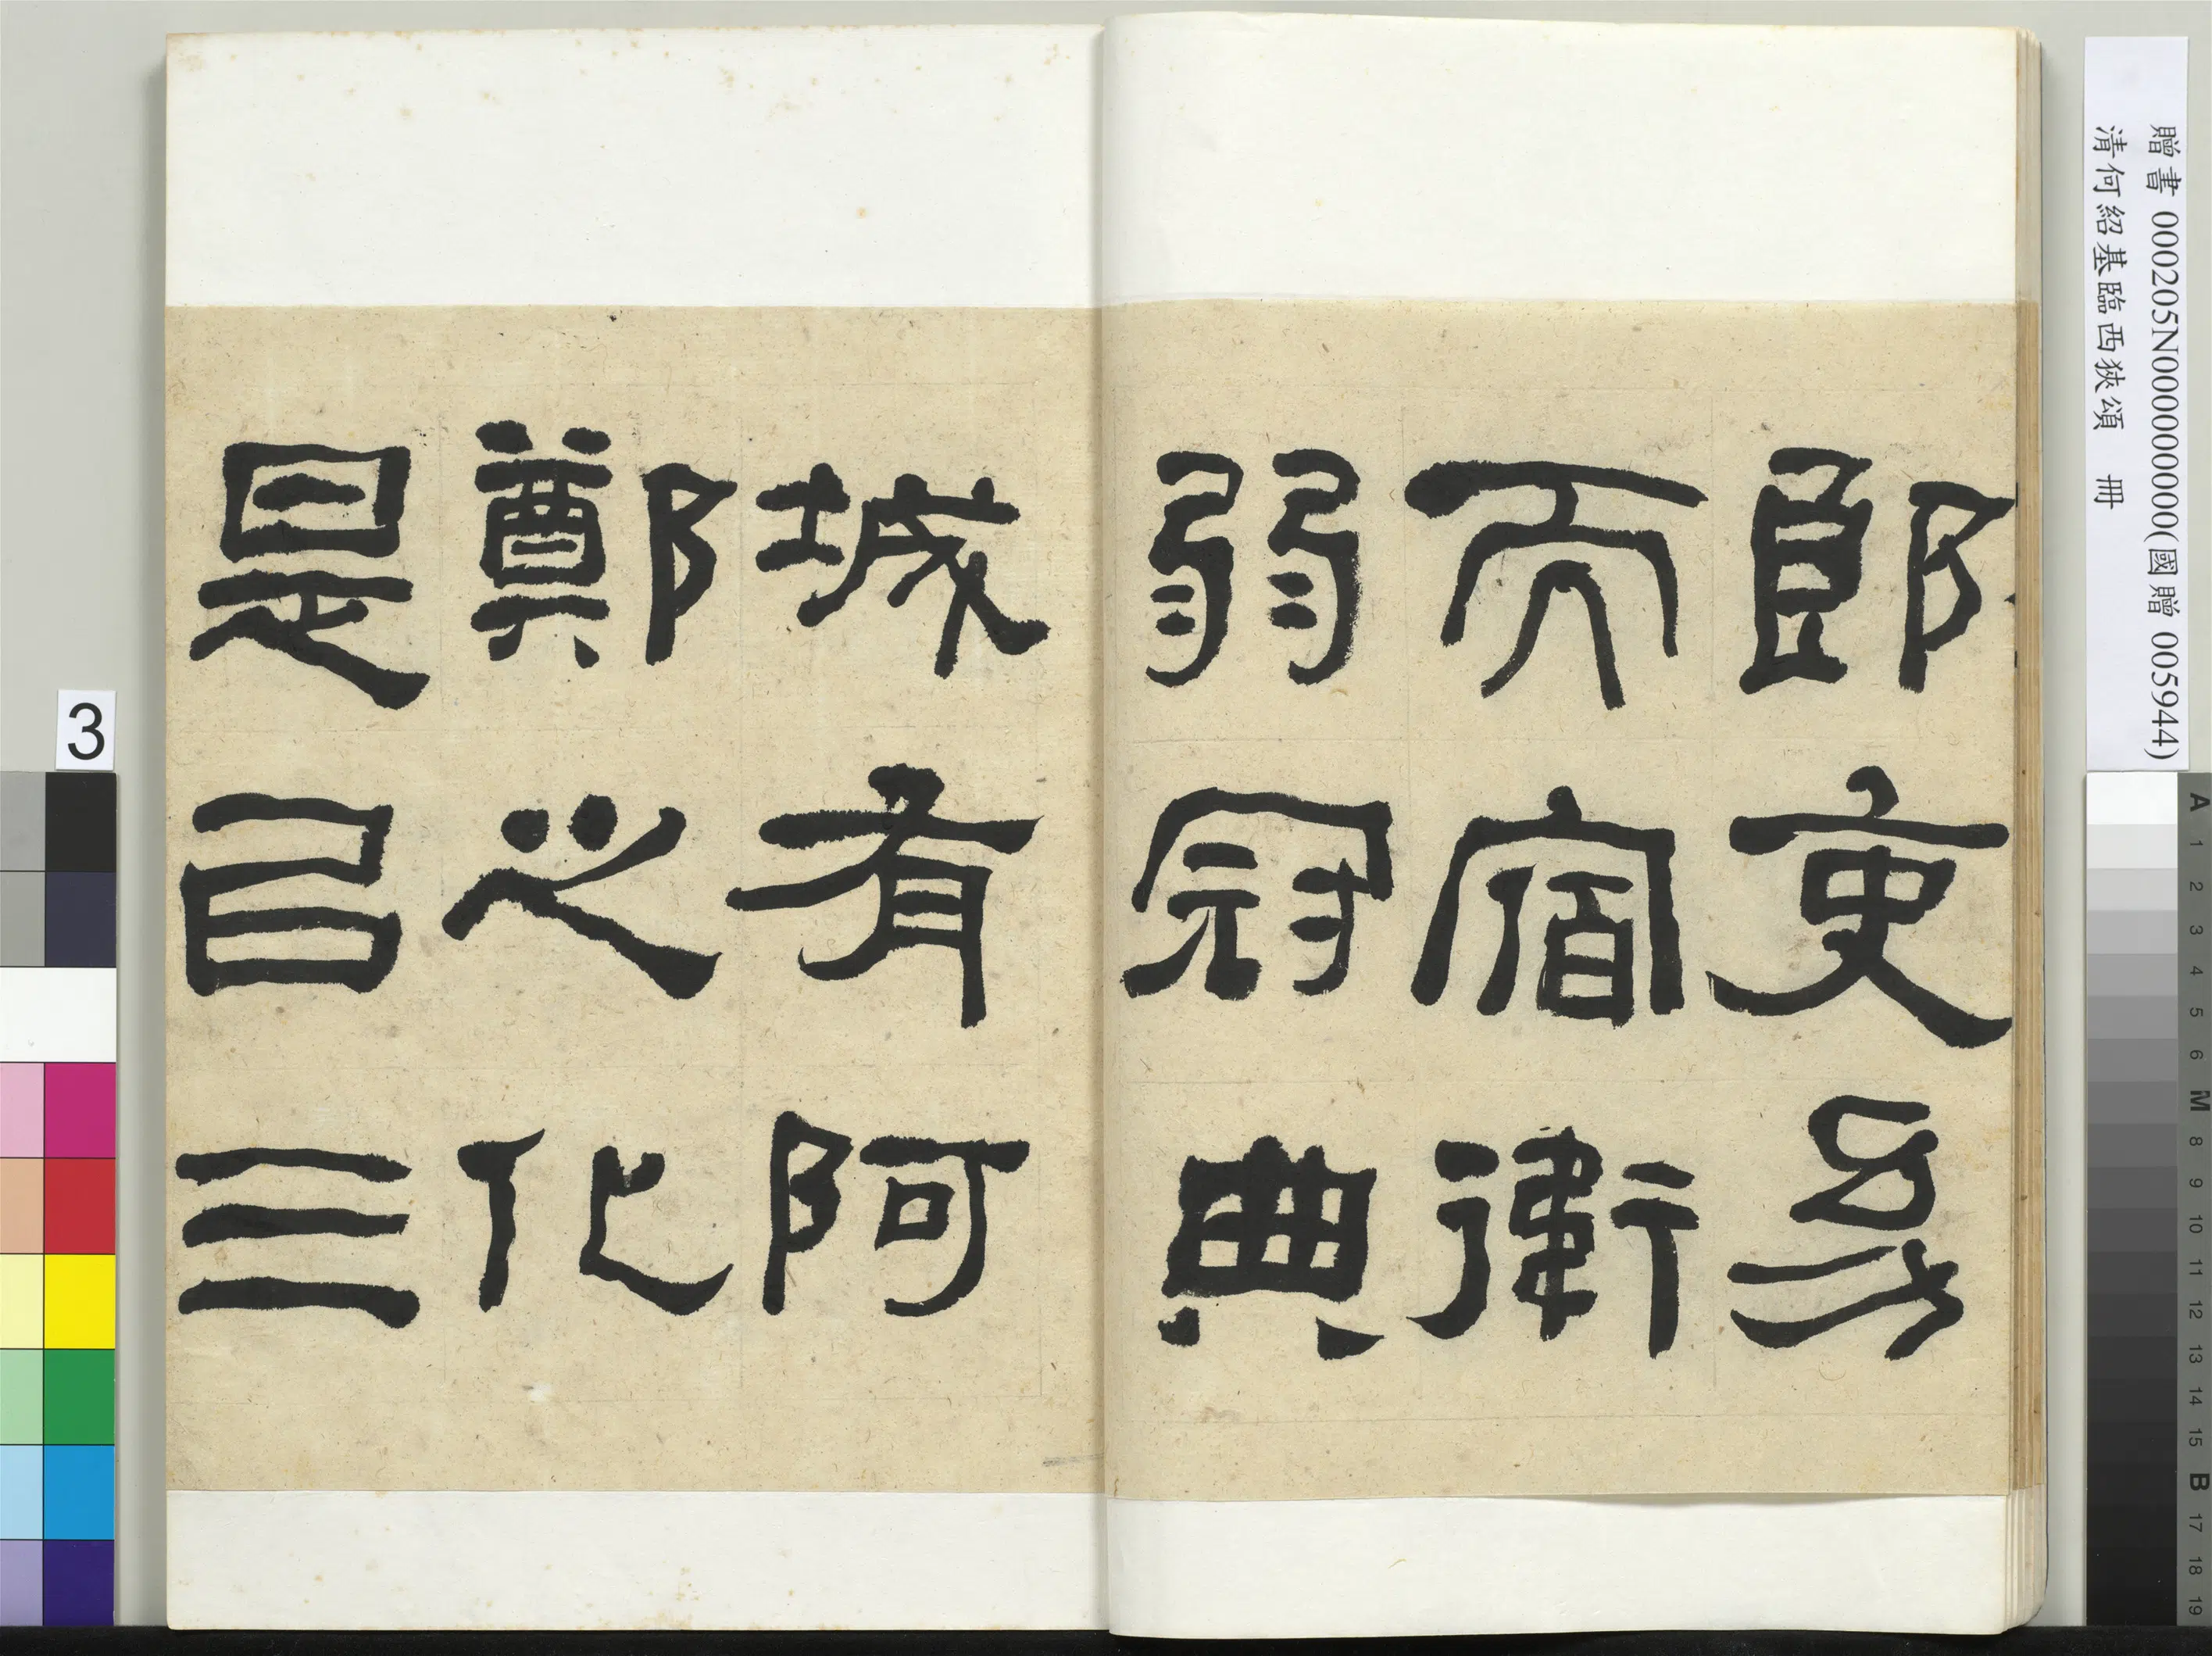 贈書 000205N000000000(國贈 005944)
清何紹基臨西狹頌 冊
郎吏幼
而宿衛
弱冠典
城有阿
鄭之化
是㠯三
3
A 1 2 3 4 5 6 M 8 9 10 11 12 13 14 15 B 17 18 19